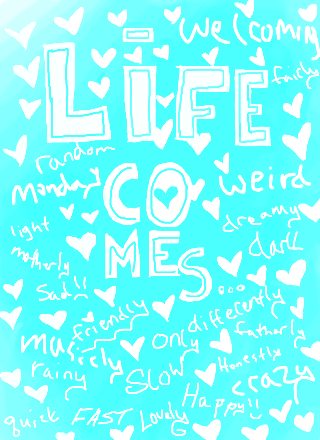 welcoming
LIFE
fairly
random
COMES
monday
weird
light
dreamy
motherly
dark
Sad!!
...
friendly
differently
fatherly
only
rainy
Slow
Honestly
crazy
Happy!!
quick FAST Lovely